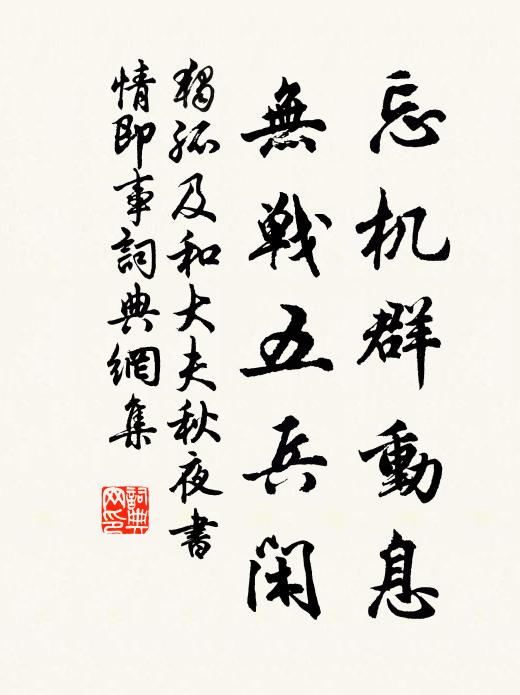 忘机群動息
無戦五兵闲
獨孤及和大夫秋夜書
情即事詞典網集
詞典
网印